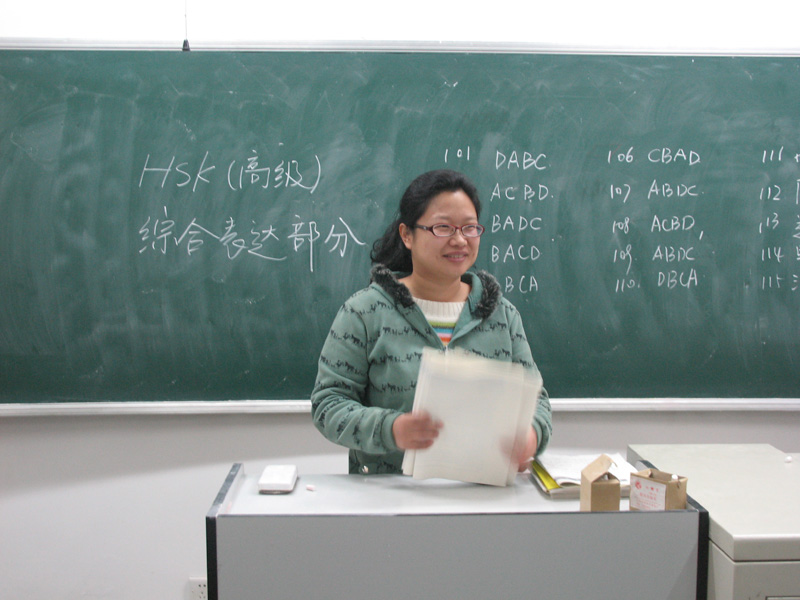 HSK (高级)
综合表达部分
101 DABC
ACBD.
BADC
BACD
BCA
106 CBAD
107 ABDC.
108 ACBD,
109. ABDC
110. DBCA
111
112
113
114
115